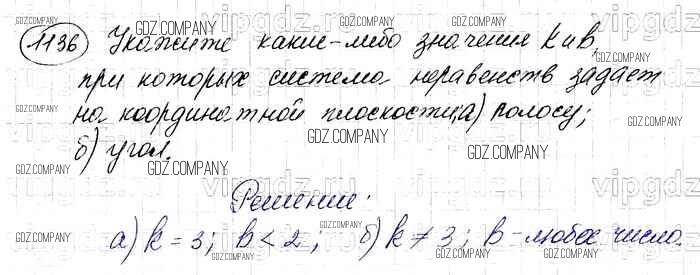 1136 Укажите какие-либо значения k и b,
при которых система неравенств задает
на координатной плоскости а) полосу;
б) угол.
Решение:
а) k = 3; b < 2; б) k ≠ 3; b - любое число.
GDZ.COMPANY
vipgdz